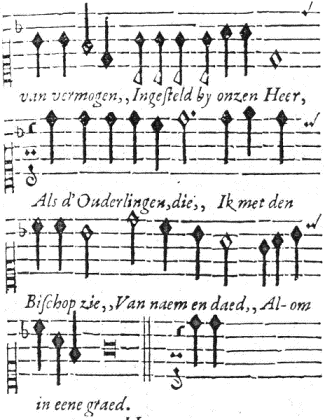 van vermogen,, Ingesteld by onzen Heer,
Als d'Ouderlingen, die,, Ik met den
Bisschop zie,, Van naem en daed,, Al-om
in eene graed.